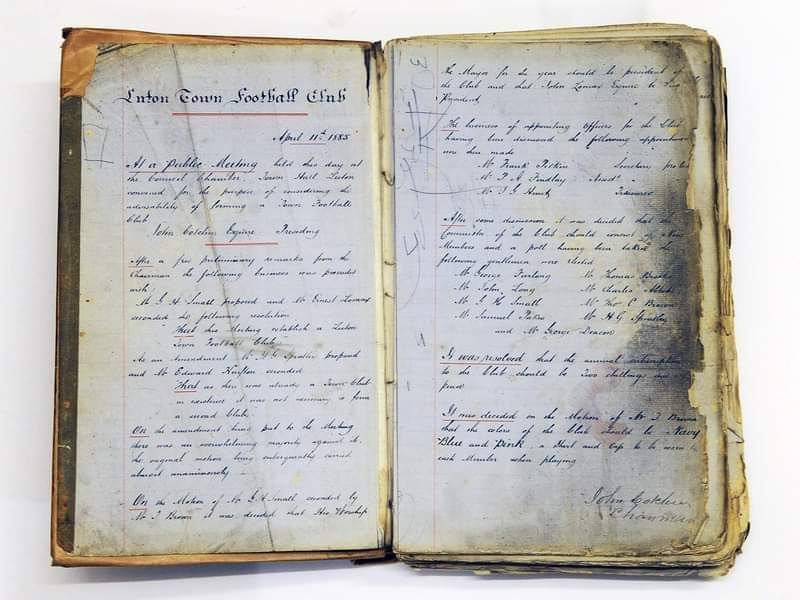 Luton Town Football Club
April 11th 1885
At a Public Meeting held this day at
the Council Chamber Town Hall Luton
convened for the purpose of considering the
advisability of forming a Town Football
Club
John Cotchin Esquire Presiding
After a few preliminary remarks from the
Chairman the following business was proceeded
with
Mr G H Small proposed and Mr Ernest Lomax
seconded the following resolution
That this Meeting establish a Luton
Town Football Club
As an Amendment Mr H G Spratley proposed
and Mr Edward seconded
That as there was already a Town Club
in existence it was not necessary to form
a second Club
On the amendment being put to the Meeting
there was an overwhelming majority against it,
the original motion being subsequently carried
almost unanimously
On the Motion of Mr G H Small seconded by
Mr I Brown it was decided that His Worship
the Mayor for the year should be president of
the Club and that John Lomax Esquire be Vice
President
The business of appointing Officers for the Club
having been discussed the following appointments
were then made
Mr Frank Secretary pro tem
Mr P A Findlay Assist "
Mr I G Hunt Treasurer
After some discussion it was decided that the
Committee of the Club should consist of Nine
Members and a poll having been taken the
following gentlemen were elected
Mr George Furlong Mr Thomas Brookes
Mr John Long Mr Charles
Mr G H Small Mr Thos C Brown
Mr Samuel Mr H G Spratley
and Mr George Deacon
It was resolved that the annual subscription
to the Club should be Two shillings and
pence
It was decided on the Motion of Mr I Brown
that the colors of the Club should be Navy
Blue and Pink a Shirt and Cap to be worn by
each Member when playing
John Cotchin
Chairman